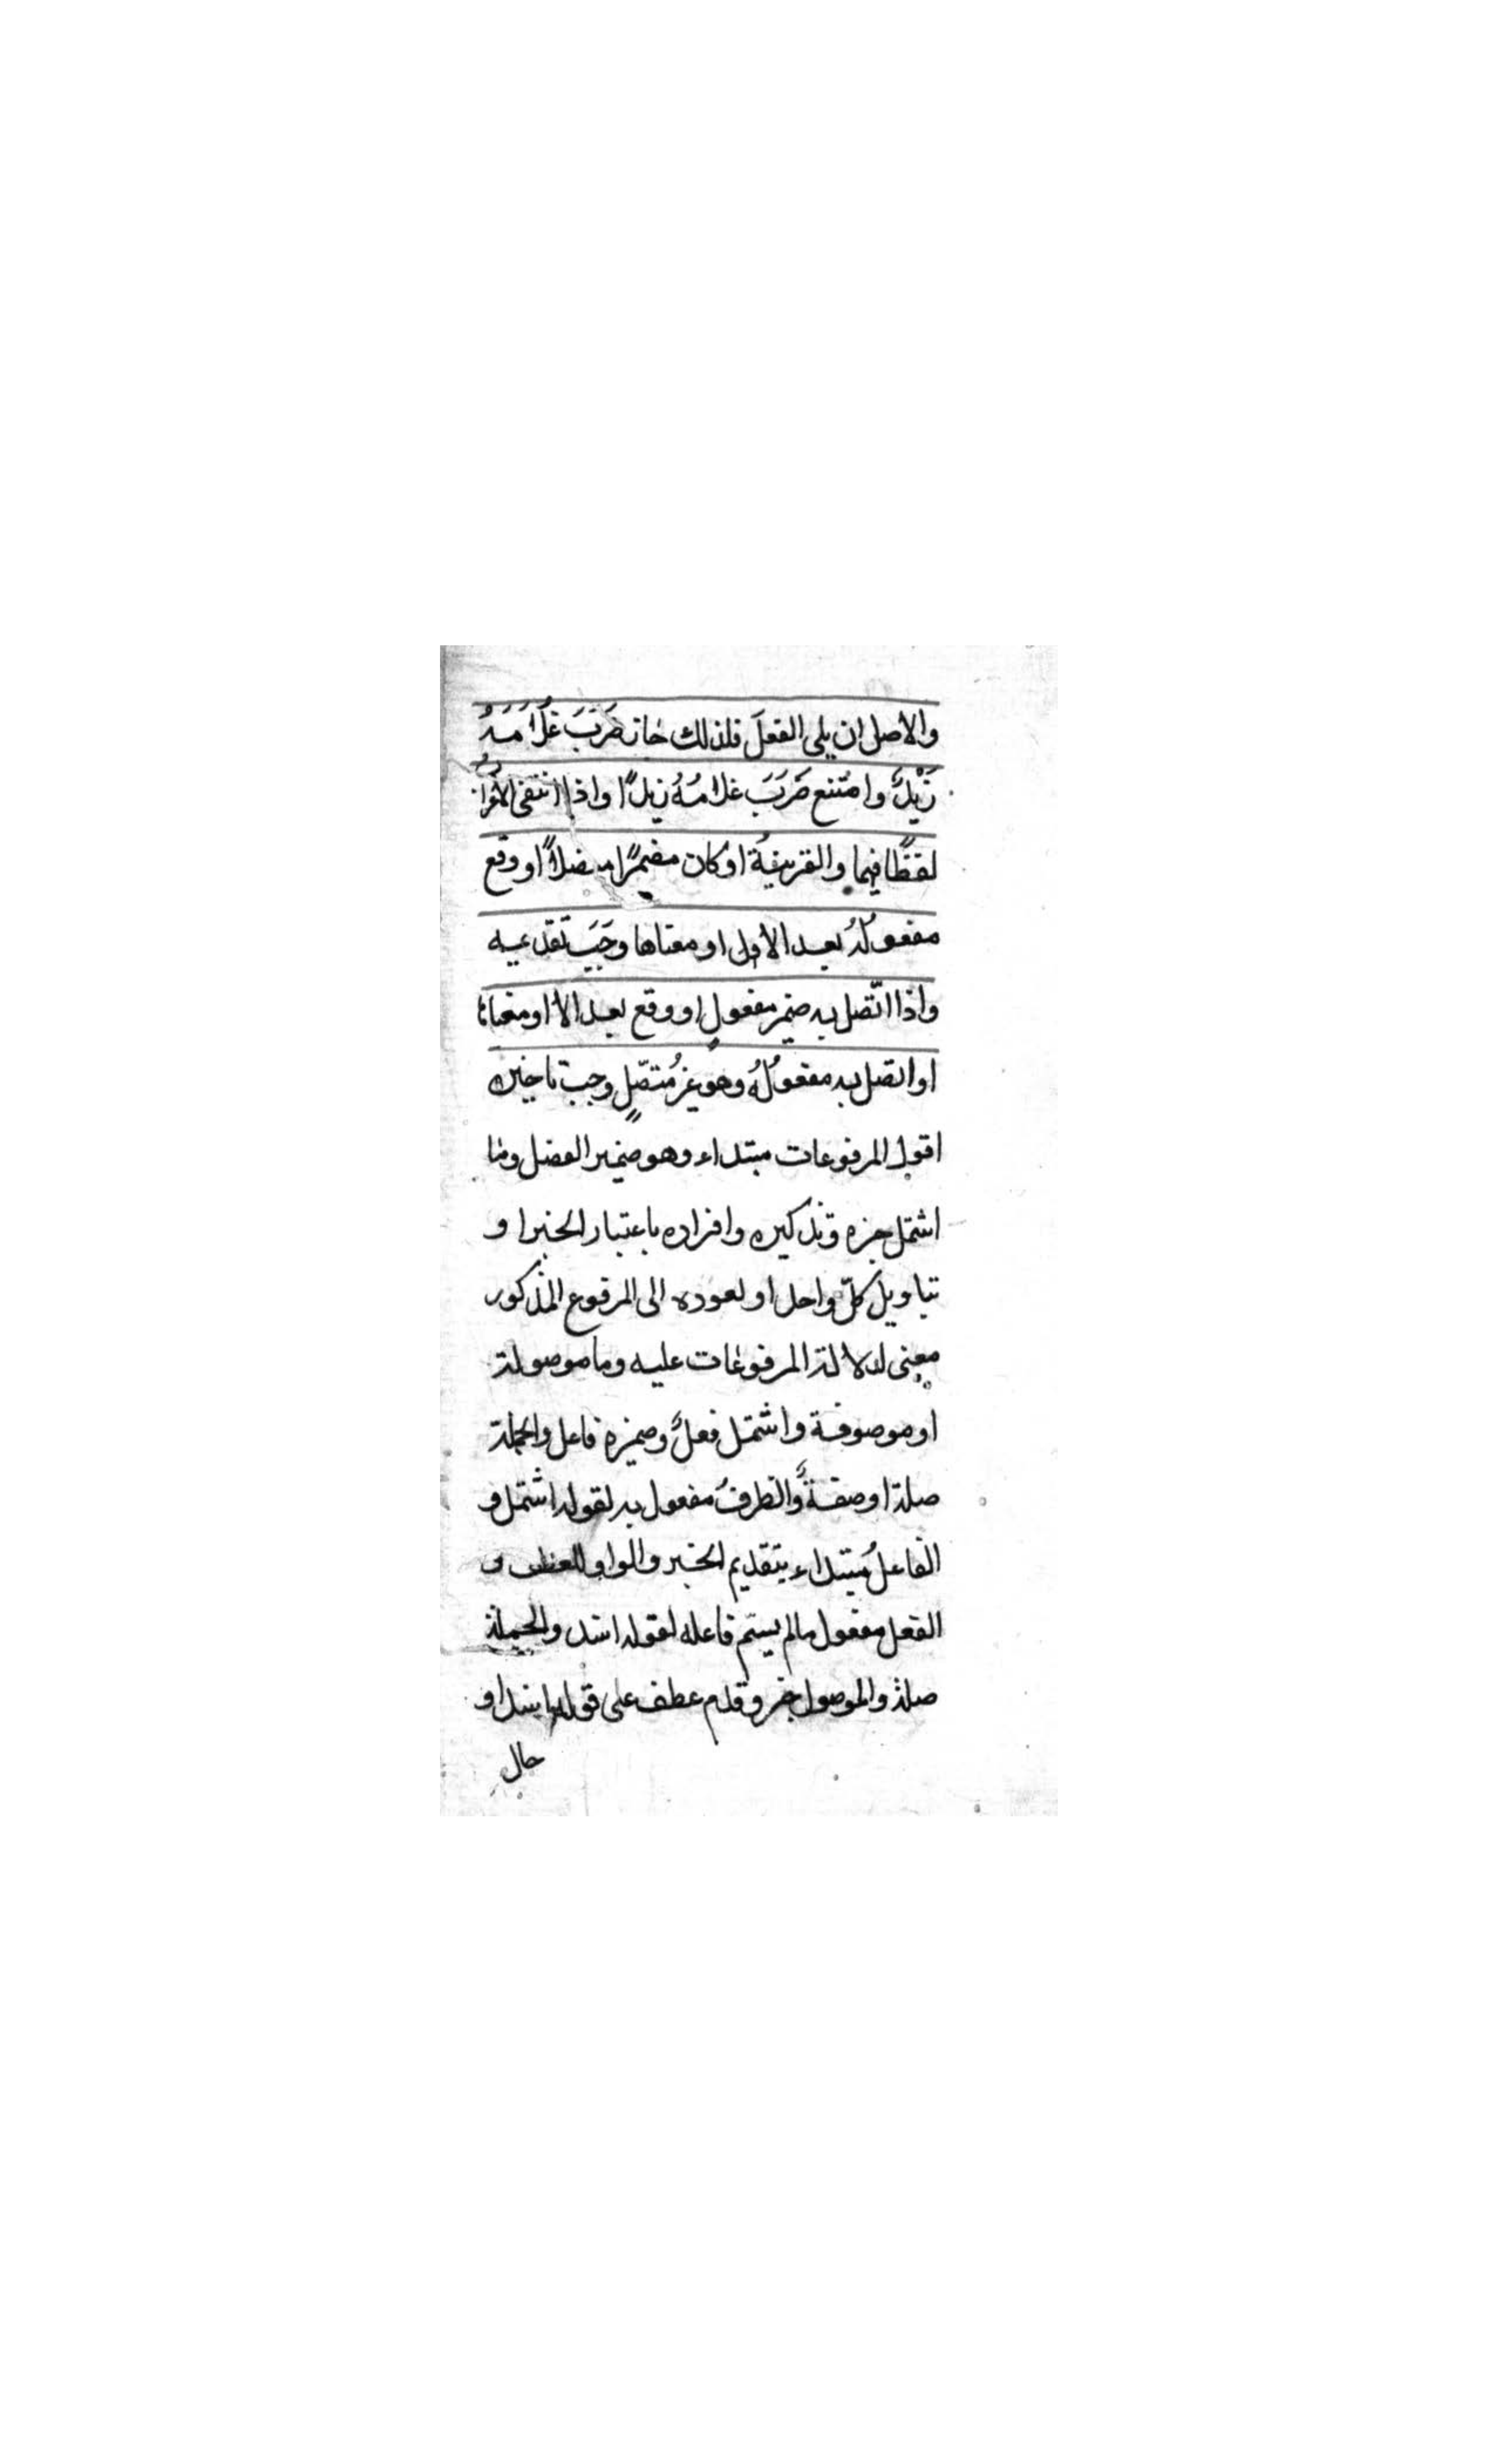 والاصل ان يلى الفعلَ فلذلك جاز ضَرَبَ غُلَامَهُ
زَيْدٌ وامتنع ضَرَبَ غلامُهُ زيدًا واذا انتفى الاعرابُ
لفظًا فيهما والقرينةُ او كان مضمرًا متصلاً او وقع
مفعولُهُ بعد الا او معناها وَجَبَ تقديمه
واذا اتّصل به ضمير مفعولٍ او وقع بعد الا او معناها
او اتصل به مفعولُهُ وهو غيرُ مُتصّلٍ وجب تاخيره
اقول المرفوعات مبتداء وهو ضمير الفصل وما
اشتمل خبره وتذكيره وافراده باعتبار الخبر او
بتاويل كلّ واحد او لعوده الى المرفوع المذكور
معنى لدلالة المرفوعات عليه وما موصولة
او موصوفة واشتمل فعلٌ وضميره فاعل والجملة
صلة او صفةٌ والظرفُ مفعول به لقوله اشتمل و
الفاعلُ مبتداء بتقديم الخبر والواو للعطف و
الفعل مفعول مالم يسم فاعله لقوله اسند والجملة
صلة والموصول خبر وقدم عطف على قوله اسند او
حال